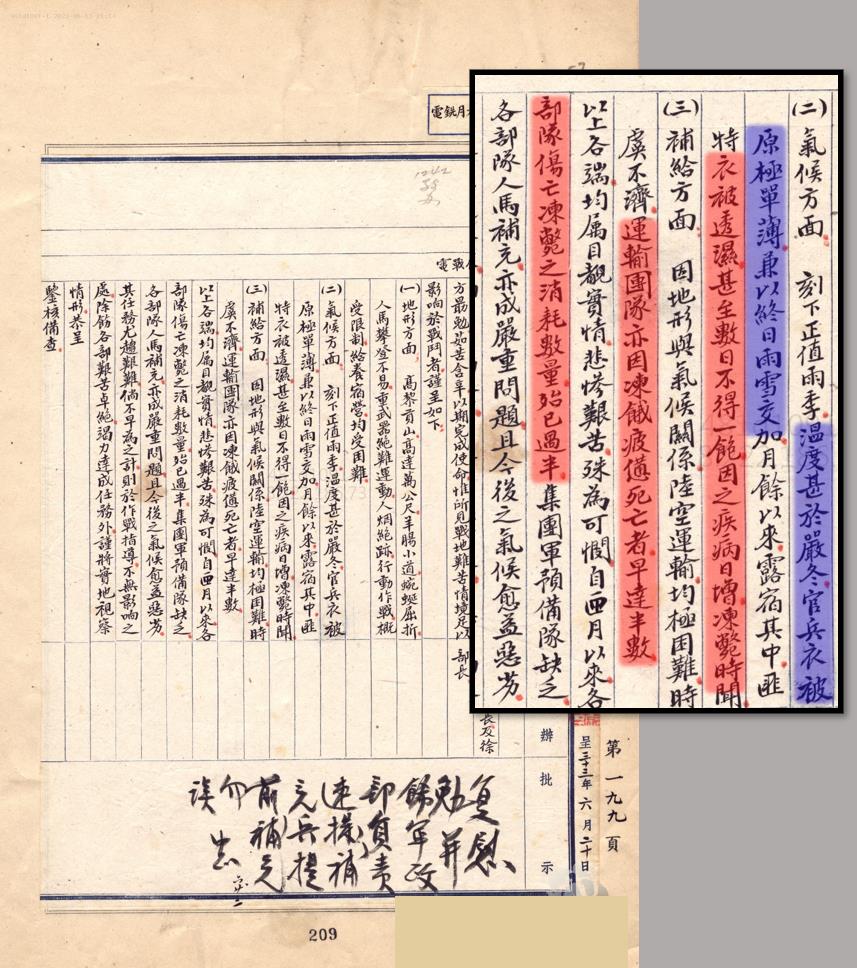 電銑月
第一九九頁
呈三十三年六月二十日
批示
辦
長及徐
部長
電戰
方最勉茹苦含辛以期完成使命惟所見戰地難苦情境足以
影响於戰鬥者謹呈如下
(一)地形方面 高黎貢山高達萬公尺羊腸小道蜿蜒屈折
人馬攀登不易重武器絕難運動人烟絕跡行動作戰概
受限制給養宿營均受困難
(二)氣候方面 刻下正值雨季溫度甚於嚴冬官兵衣被
原極單薄兼以終日雨雪交加月餘以來露宿其中匪
特衣被透濕甚至數日不得一飽因之疾病日增凍斃時聞
(三)補給方面 因地形與氣候關係陸空運輸均極困難時
虞不濟運輸團隊亦因凍餓疲憊死亡者早達半數
以上各端均属目覩實情悲慘艱苦殊為可憫自四月以來各
部隊傷亡凍斃之消耗數量殆已過半集團軍預備隊缺乏
各部隊人馬補充亦成嚴重問題且今後之氣候愈益惡劣
其任務尤趨艱難倘不早為之計則於作戰指導不無影响之
處除飭各部艱苦卓絕竭力達成任務外謹將實地視察
情形恭呈
鑒核備查
复慰
勉并
飭軍政
部負責
速撥補
充兵提
前補充
勿
誤
209
(二)氣候方面 刻下正值雨季溫度甚於嚴冬官兵衣被
原極單薄兼以終日雨雪交加月餘以來露宿其中匪
特衣被透濕甚至數日不得一飽因之疾病日增凍斃時聞
(三)補給方面 因地形與氣候關係陸空運輸均極困難時
虞不濟運輸團隊亦因凍餓疲憊死亡者早達半數
以上各端均属目覩實情悲慘艱苦殊為可憫自四月以來各
部隊傷亡凍斃之消耗數量殆已過半集團軍預備隊缺乏
各部隊人馬補充亦成嚴重問題且今後之氣候愈益惡劣